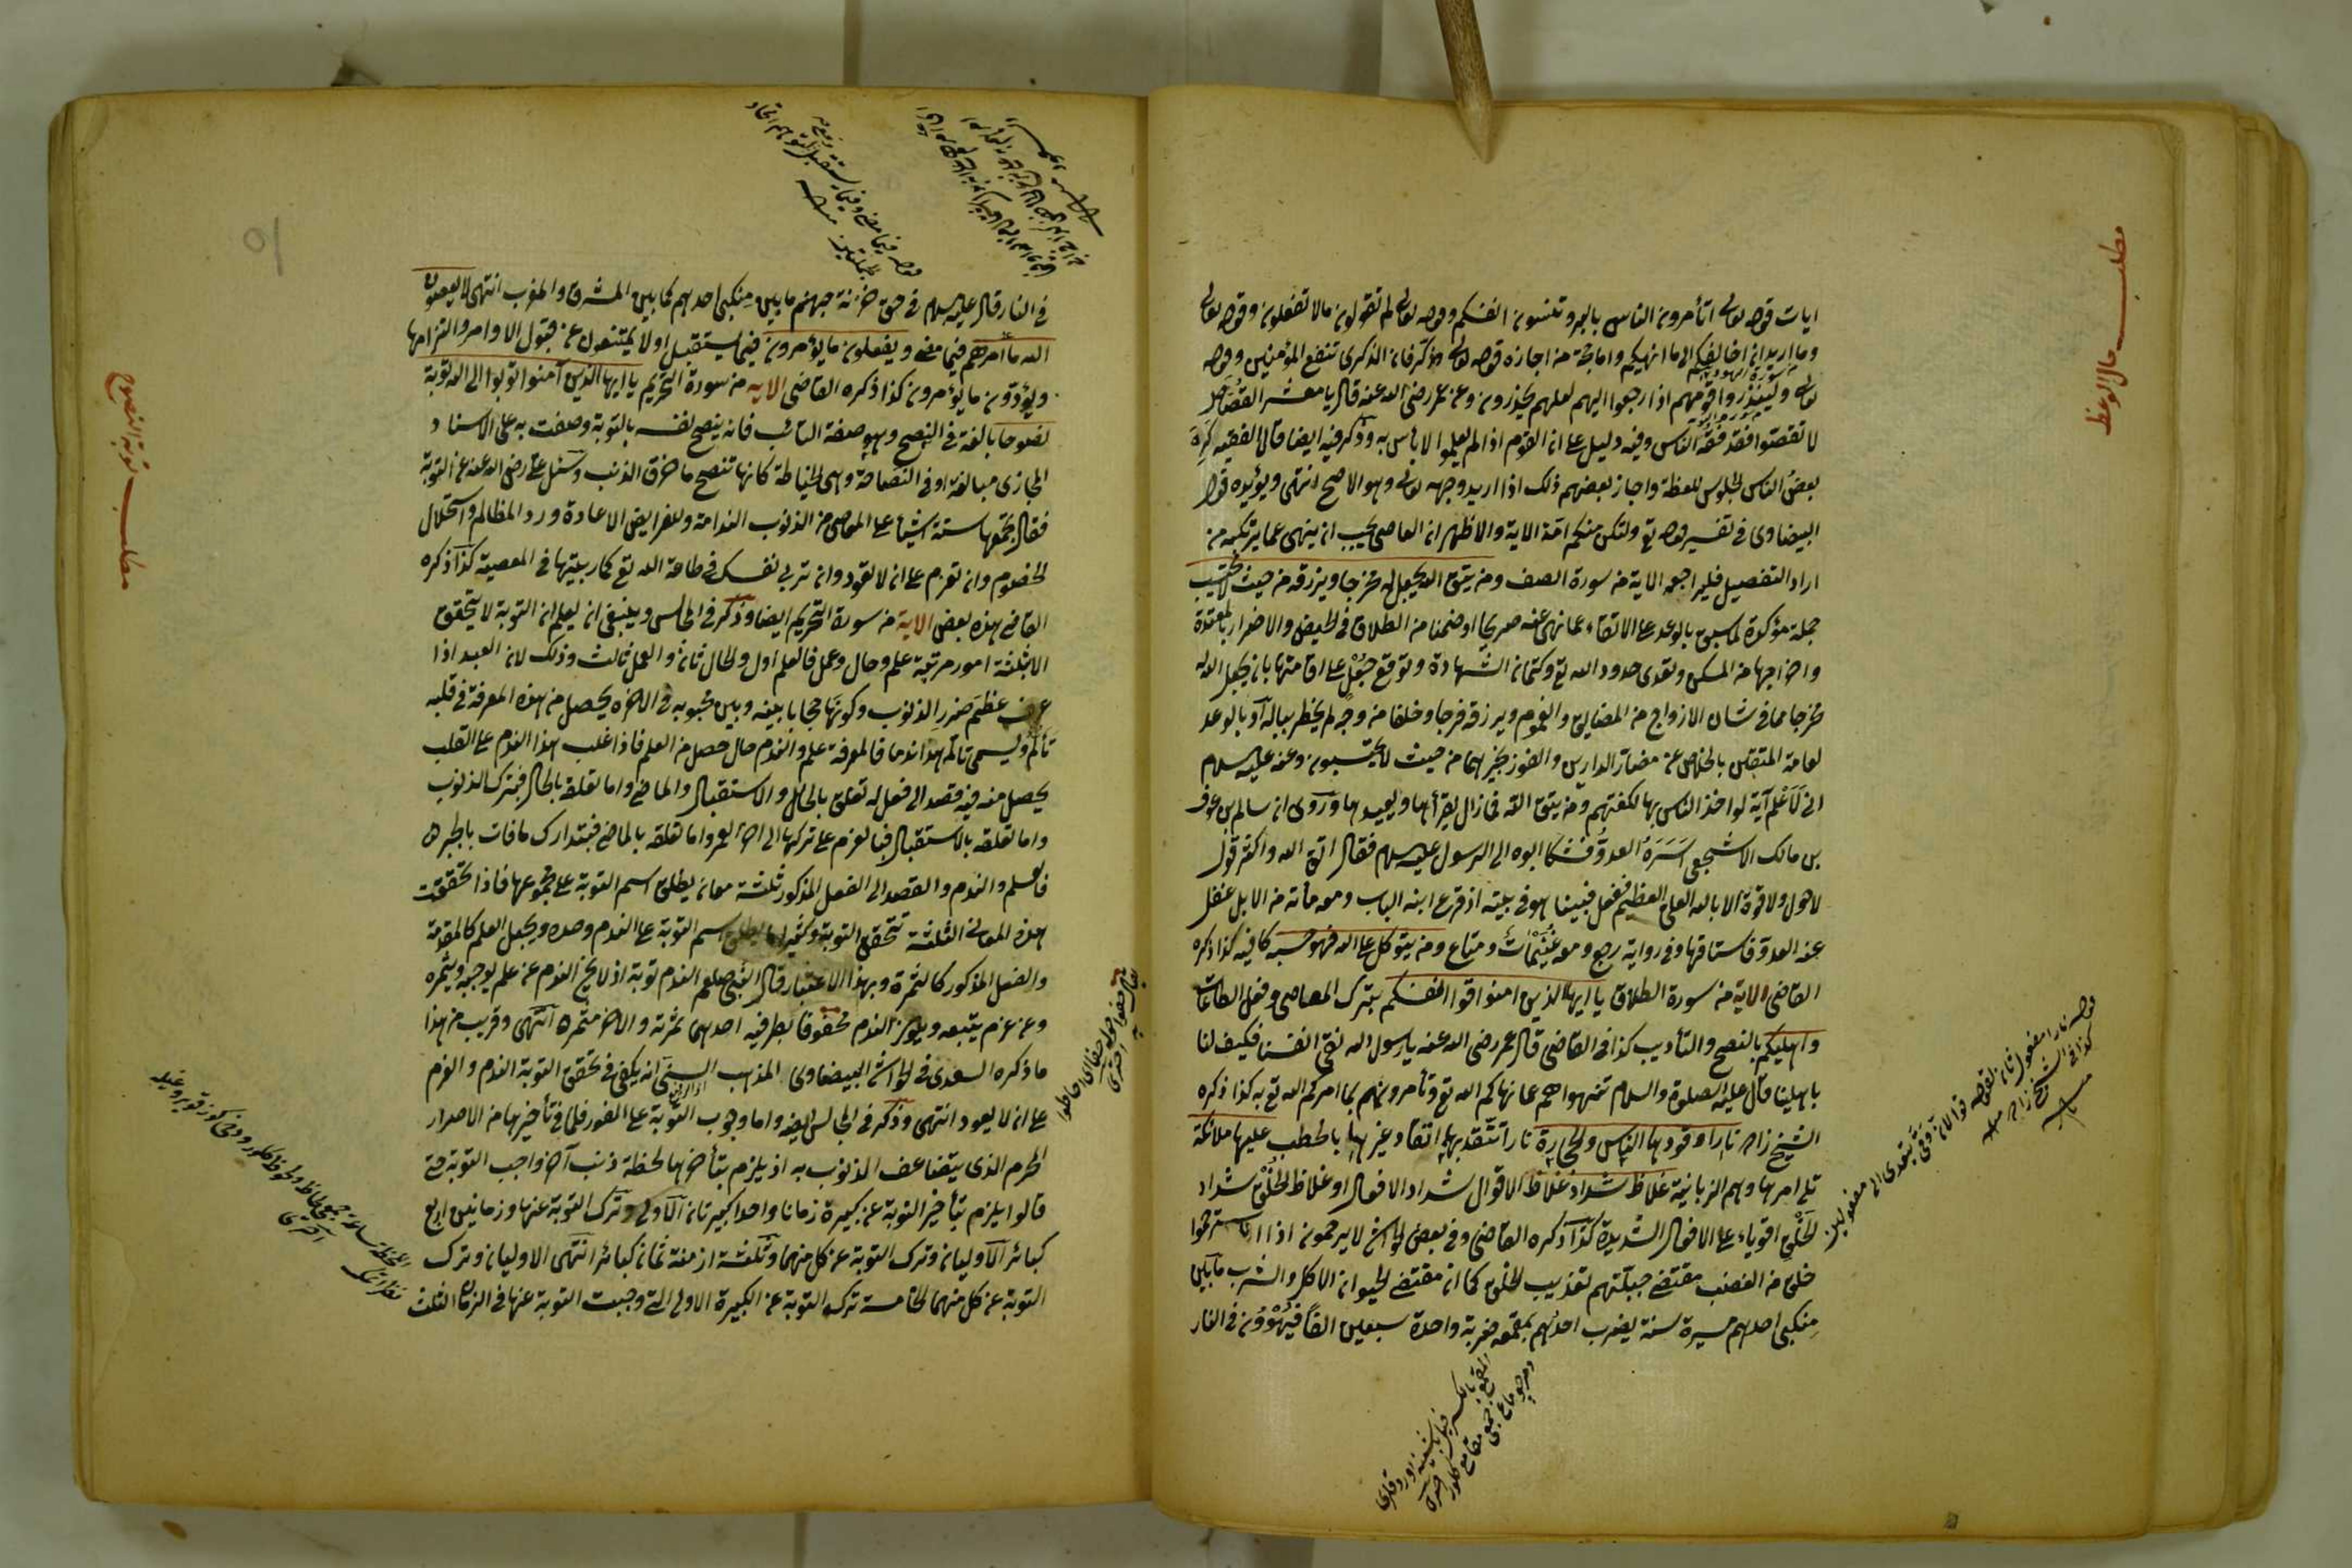 مطلب حال الوعظ
ايات قوله تعالى اتأمرون الناس بالبر وتنسون انفسكم وقوله تعالى لم تقولون مالا تفعلون وقوله تعالى
وما اريد ان اخالفكم الى ما انهيكم واما حجة من اجازه قوله تعالى وذكر فان الذكرى تنفع المؤمنين وقوله
تعالى ولينذروا قومهم اذا رجعوا اليهم لعلهم يحذرون وعن عمر رضى الله عنه قال يا معشر القصاص
لا تقصوا فقد فقه الناس وفيه دليل على ان القوم اذا لم يعلموا لا بأس به وذكر فيه ايضا قال الفقيه كره
بعض الناس الجلوس للعظة واجاز بعضهم ذلك اذا اريد وجهه تعالى وهو الاصح انتهى ويؤيده قول
البيضاوى فى تفسير قوله تع ولتكن منكم امة الاية والاظهر ان العاصى يجب ان ينهى عما يرتكبه من
اراد التفصيل فليراجعه الاية من سورة الصف ومن يتق الله يجعل له مخرجا ويرزقه من حيث لا يحتسب
جملة مؤكدة لما سبق بالوعد على الاتقاء عما نهى عنه صريحا او ضمنا من الطلاق فى الحيض والاضرار بالمعتدة
واخراجها من المسكن وتعدى حدود الله تع وكتمان الشهادة وتوقع جعل على اقامتها بان يجعل الله له
مخرجا مما فى شان الازواج من المضايق والغموم ويرزقه فرجا وخلفا من وجه لم يخطر بباله او بالوعد
لعامة المتقين بالخلاص عن مضار الدارين والفوز بخيرهما من حيث لا يحتسبون وعنه عليه سلام
انى لاعلم آية لو اخذ الناس بها لكفتهم ومن يتق الله فما زال يقرأها ويعيدها وروى ان سالم بن عوف
بن مالك الاشجعى اسره العدو فشكا ابوه الى الرسول عليه سلام فقال اتق الله واكثر قول
لا حول ولا قوة الا بالله العلى العظيم ففعل فبينا هو فى بيته اذ قرع ابنه الباب ومعه مائة من الابل غفل
عنه العدو فاستاقها وفى رواية رجع ومعه غنيمات ومتاع ومن يتوكل على الله فهو حسبه كافيه كذا ذكره
القاضى الاية من سورة الطلاق يا ايها الذين امنوا قوا انفسكم بترك المعاصى وفعل الطاعات
واهليكم بالنصح والتأديب كذا فى القاضى قال عمر رضى الله عنه يا رسول الله نقى انفسنا فكيف لنا
باهلينا قال عليه الصلوة والسلام تنهوا هم عما نهاكم الله تع وتأمرونهم بما امركم الله تع به كذا ذكره
الشيخ زاده نارا وقودها الناس والحجارة نارا تتقد بهما اتقاد غيرها بالحطب عليها ملائكة
تلى امرها وهم الزبانية غلاظ شداد غلاظ الاقوال شداد الافعال او غلاظ الخلق شداد
الخلق اقوياء على الافعال الشديدة كذا ذكره القاضى وفى بعض الحواشى لا يرحمون اذا استرحموا
خلق من الغضب مقتضى جبلتهم تعذيب الخلق كما ان مقتضى الحيوان الاكل والشرب ما بين
منكبى احدهم مسيرة سنة يضرب احدهم بمقمعه ضربة واحدة سبعين الفا فيهوون فى النار
قوله نارا مفعول ثان لقوله قوا لان وقى يتعدى الى مفعولين
كذا فى شيخ زاده
مطلب توبة النصوح
فى النار قال عليه سلام فى حق خزنة جهنم ما بين منكبى احدهم كما بين المشرق والمغرب انتهى لا يعصون
الله ما امرهم فيما مضى ويفعلون ما يؤمرون فيما يستقبل او لا يمتنعون عن قبول الاوامر والتزامها
ويؤدون ما يؤمرون كذا ذكره القاضى الاية من سورة التحريم يا ايها الذين آمنوا توبوا الى الله توبة
نصوحا بالغة فى النصح وهو صفة التائب فانه ينصح نفسه بالتوبة وصفت به على الاسناد
المجازى مبالغة او فى النصاحة وهى الخياطة كانها تنصح ما خرق الذنب وسئل على رضى الله عنه عن التوبة
فقال يجمعها ستة اشياء على الماضى من الذنوب الندامة وللفرايض الاعادة ورد المظالم واستحلال
الخصوم وان تعزم على ان لا تعود وان تربى نفسك فى طاعة الله تع كما ربيتها فى المعصية كذا ذكره
القاضى هذه بعض الاية من سورة التحريم ايضا وذكر فى المجالس وينبغى ان يعلم ان التوبة لا يتحقق
الا بثلثة امور مرتبة علم وحال وعمل فالعلم اول والحال ثان والعمل ثالث وذلك لان العبد اذا
عرف عظم ضرر الذنوب وكونها حجابا بينه وبين محبوبه فى الاخرة يحصل من هذه المعرفة فى قلبه
تألم ويسمى تألمه هذا ندما فالمعرفة علم والندم حال حصل من العلم فاذا غلب هذا الندم على القلب
يحصل منه فيه قصد الى فعل له تعلق بالحال والاستقبال والماضى واما تعلقه بالحال فبترك الذنوب
واما تعلقه بالاستقبال فبالعزم على تركها الى اخر العمر واما تعلقه بالماضى فبتدارك ما فات بالجبر
فالعلم والندم والقصد الى الفعل المذكور ثلثة معان يطلق اسم التوبة على مجموعها فاذا تحققت
هذه المعانى الثلثة تتحقق التوبة وكثيرا ما يطلق اسم التوبة على الندم وحده ويجعل العلم كالمقدمة
والفعل المذكور كالثمرة وبهذا الاعتبار قال النبى صلعم الندم توبة اذ لا يخ الندم عن علم يوجبه ويثمره
وعن عزم يتبعه ويكون الندم محفوفا بطرفيه احدهما ثمرته والاخر مثمره انتهى وقريب من هذا
ما ذكره السعدى فى الحواشى البيضاوى المذهب السنى انه يكفى فى تحقق التوبة الندم والعزم
على ان لا يعود انتهى وذكر فى المجالس ايضا واما وجوب التوبة على الفور فلما فى تأخيرها من الاصرار
المحرم الذى يتضاعف الذنوب به اذ يلزم بتأخرها لحظة ذنب آخر واجب التوبة حتى
قالوا يلزم بتأخير التوبة عن كبيرة زمانا واحدا كبيرتان الاولى وترك التوبة عنها وزمانين اربع
كبائر الاوليان وترك التوبة عن كل منهما وثلثة ازمنة ثمان كبائر انتهى الاوليان وترك
التوبة عن كل منهما الخامسة ترك التوبة عن الكبيرة الاولى التى وجبت التوبة عنها فى الزمان الثلث